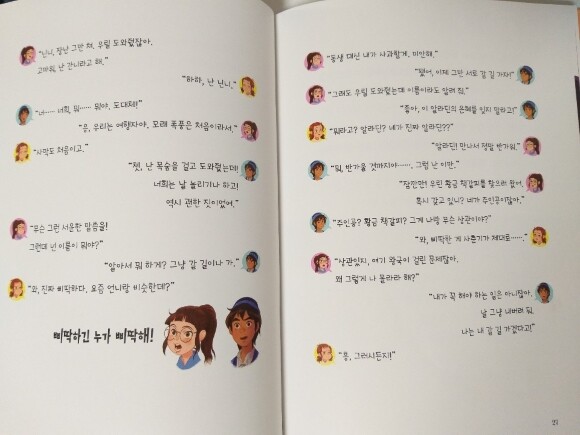 "닌니, 장난 그만 쳐. 우릴 도와줬잖아.
고마워. 난 간니라고 해."
"하하, 난 닌니."
"너…… 너희, 뭐…… 뭐야, 도대체!"
"응, 우리는 여행자야. 모래 폭풍은 처음이라서."
"사막도 처음이고."
"쳇, 난 목숨을 걸고 도와줬는데!
너희는 날 놀리기나 하고!
역시 괜한 짓이었어."
"무슨 그런 서운한 말씀을!
그런데 넌 이름이 뭐야?"
"알아서 뭐 하게? 그냥 갈 길이나 가."
"와, 진짜 삐딱하다. 요즘 언니랑 비슷한데?"
삐딱하긴 누가 삐딱해!
"동생 대신 내가 사과할게, 미안해."
"됐어, 이제 그만 서로 갈 길 가자!"
"그래도 우릴 도와줬는데 이름이라도 알려 줘."
"좋아, 이 알라딘의 은혜를 잊지 말라고!"
"뭐라고? 알라딘? 네가 진짜 알라딘??"
"알라딘! 만나서 정말 반가워."
"뭐, 반가울 것까지야……. 그럼 난 이만."
"잠깐만! 우린 황금 책갈피를 찾으러 왔어.
혹시 갖고 있니? 네가 주인공이잖아."
"주인공? 황금 책갈피? 그게 나랑 무슨 상관이야?"
"와, 삐딱한 게 사춘기가 제대로……."
"상관있지, 여기 왕국이 걸린 문제잖아.
왜 그렇게 나 몰라라 해?"
"내가 꼭 해야 하는 일은 아니잖아.
날 그냥 내버려 둬.
나는 내 갈 길 가겠다고!"
"흥, 그러시든지!"
27